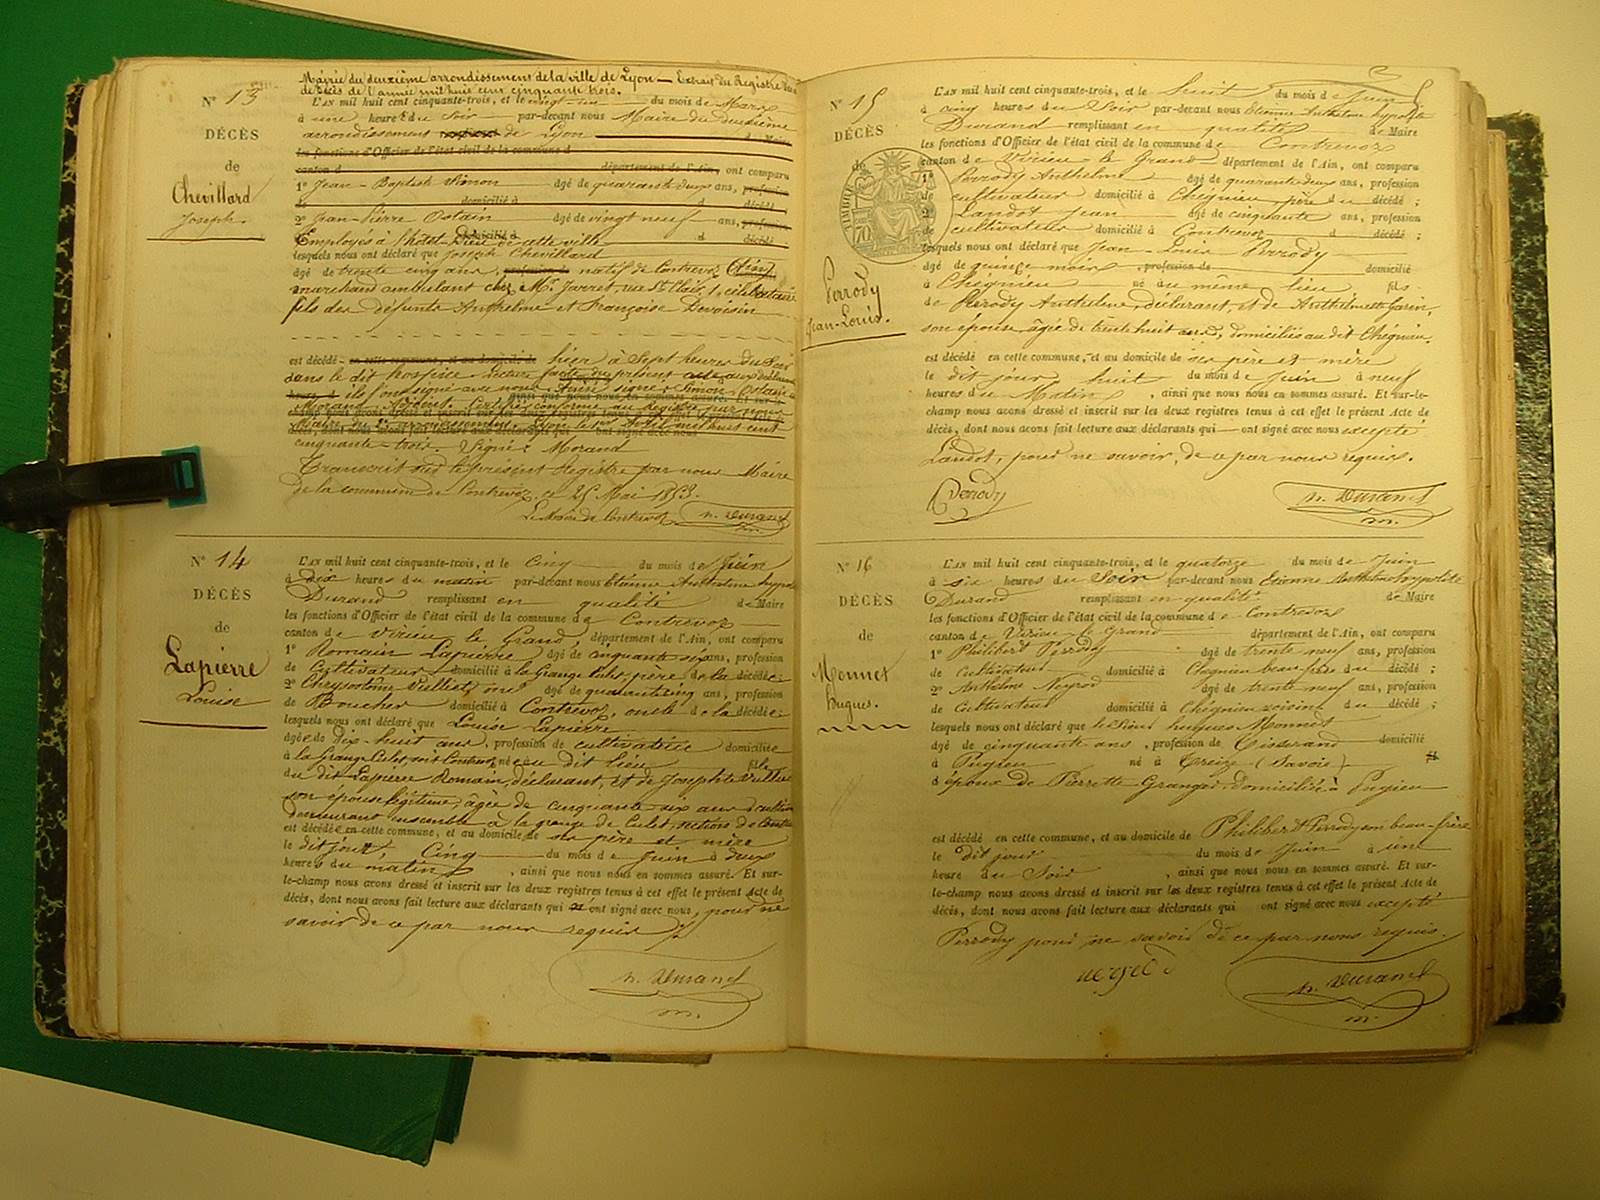 Mairie du deuxième arrondissement de la ville de Lyon — Extrait du Registre des
de Décès de l'année mil huit cent cinquante trois.
N° 13
DÉCÈS
de
Chevillard
Joseph.
L'AN mil huit cent cinquante-trois, et le vingt-un du mois de Mars
à une heure du Soir par-devant nous Maire du deuxième
arrondissement de Lyon de Maire
les fonctions d'Officier de l'état civil de la commune d
canton d département de l'Ain, ont comparu
1° Jean-Baptiste Simon âgé de quarante deux ans, profession
de domicilié à d décédé ;
2° Jean-Pierre Ostain âgé de vingt neuf ans, profession
Employés à l'hôtel-Dieu de cette ville domicilié à d décédé
lesquels nous ont déclaré que Joseph Chevillard
âgé de trente cinq ans, profession de natif de Contrevoz (Ain)
marchand ambulant chez Mr Jurret, rue St Clair 1, célibataire
fils des défunts Anthelme et Françoise Devoisin
est décédé en cette commune, et au domicile de hier à Sept heures du Soir
dans le dit hospice. Lecture faite du présent acte aux déclarants
ils l'ont signé avec nous. Ainsi signé : Simon, Ostain &
Morand, adjoint. Certifié conforme au Registre par nous
Maire du 2e arrondissement. Lyon le 1er Avril mil huit cent
cinquante-trois. Signé : Morand
Transcrit sur le présent Registre par nous Maire
de la commune de Contrevoz, ce 25 Mai 1853.
Le Maire de Contrevoz h. Durand
N° 14
DÉCÈS
de
Lapierre
Louise
L'AN mil huit cent cinquante-trois, et le Cinq du mois de Juin
à Dix heures du matin par-devant nous Etienne Anthelme hyppo
Durand remplissant en qualité de Maire
les fonctions d'Officier de l'état civil de la commune de Contrevoz
canton de Virieu le Grand, département de l'Ain, ont comparu
1° Romain Lapierre âgé de cinquante six ans, profession
de Cultivateur domicilié à la Grange Culet, père de la décédée
2° Chrysostôme Vulliet, oncle âgé de quarante cinq ans, profession
de Boucher domicilié à Contrevoz, oncle de la décédée
lesquels nous ont déclaré que Louise Lapierre
âgée de Dix-huit ans, profession de cultivatrice domiciliée
à la Grange Culet, soit Contrevoz née au dit lieu fille
du dit Lapierre Romain, déclarant, et de Josephte Vulliet
son épouse légitime, âgée de cinquante six ans d cultiv
demeurant ensemble à la grange de Culet, section de Contre
est décédée en cette commune, et au domicile de ses père et mère
le dit jour, Cinq du mois de Juin à deux
heures du matin, ainsi que nous nous en sommes assuré. Et sur-
le-champ nous avons dressé et inscrit sur les deux registres tenus à cet effet le présent Acte de
décès, dont nous avons fait lecture aux déclarants qui n'ont signé avec nous, pour ne
savoir de ce par nous requis
h. Durand
N° 15
DÉCÈS
de
TIMBRE
70
Perrody
Jean-Louis.
L'AN mil huit cent cinquante-trois, et le huit du mois de Juin
à cinq heures du Soir par-devant nous Etienne Anthelme hypolite
Durand remplissant en qualité de Maire
les fonctions d'Officier de l'état civil de la commune de Contrevoz
canton de Virieu-le-Grand département de l'Ain, ont comparu
1° Perrody Anthelme âgé de quarante deux ans, profession
de cultivateur domicilié à Chégnieu père du décédé ;
2° Landot Jean âgé de cinquante ans, profession
de cultivateur domicilié à Contrevoz d décédé ;
lesquels nous ont déclaré que Jean-Louis Perrody
âgé de quinze mois, profession de domicilié
à Chégnieu né au même lieu fils
de Perrody Anthelme déclarant, et de Anthelmette Garin,
son épouse âgée de trente huit ans, domiciliés au dit Chégnieu.
est décédé en cette commune, et au domicile de ses père et mère
le dit jour huit du mois de Juin à neuf
heures du Matin, ainsi que nous nous en sommes assuré. Et sur-le-
champ nous avons dressé et inscrit sur les deux registres tenus à cet effet le présent Acte de
décès, dont nous avons fait lecture aux déclarants qui ont signé avec nous excepté
Landot, pour ne savoir, de ce par nous requis.
Perrody h. Durand
N° 16
DÉCÈS
de
Monnet
hugues.
L'AN mil huit cent cinquante-trois, et le quatorze du mois de Juin
à six heures du Soir par-devant nous Etienne Anthelme hypolite
Durand remplissant en qualité de Maire
les fonctions d'Officier de l'état civil de la commune de Contrevoz
canton de Virieu-le-Grand département de l'Ain, ont comparu
1° Philibert Perrody âgé de trente neuf ans, profession
de Cultivateur domicilié à Chégnieu beau frère du décédé ;
2° Anthelme Neyrod âgé de trente neuf ans, profession
de Cultivateur domicilié à Chégnieu voisin du décédé ;
lesquels nous ont déclaré que le Sieur hugues Monnet
âgé de cinquante ans, profession de Tisserand domicilié
à Pugieu né à (Savoie) fils
d époux de Pierrette Granger domiciliée à Pugieu
est décédé en cette commune, et au domicile de Philibert Perrody son beau-frère
le dit jour du mois de Juin à une
heure du Soir, ainsi que nous nous en sommes assuré. Et sur-
le-champ nous avons dressé et inscrit sur les deux registres tenus à cet effet le présent Acte de
décès, dont nous avons fait lecture aux déclarants qui ont signé avec nous excepté
Perrody pour ne savoir de ce par nous requis.
h. Durand